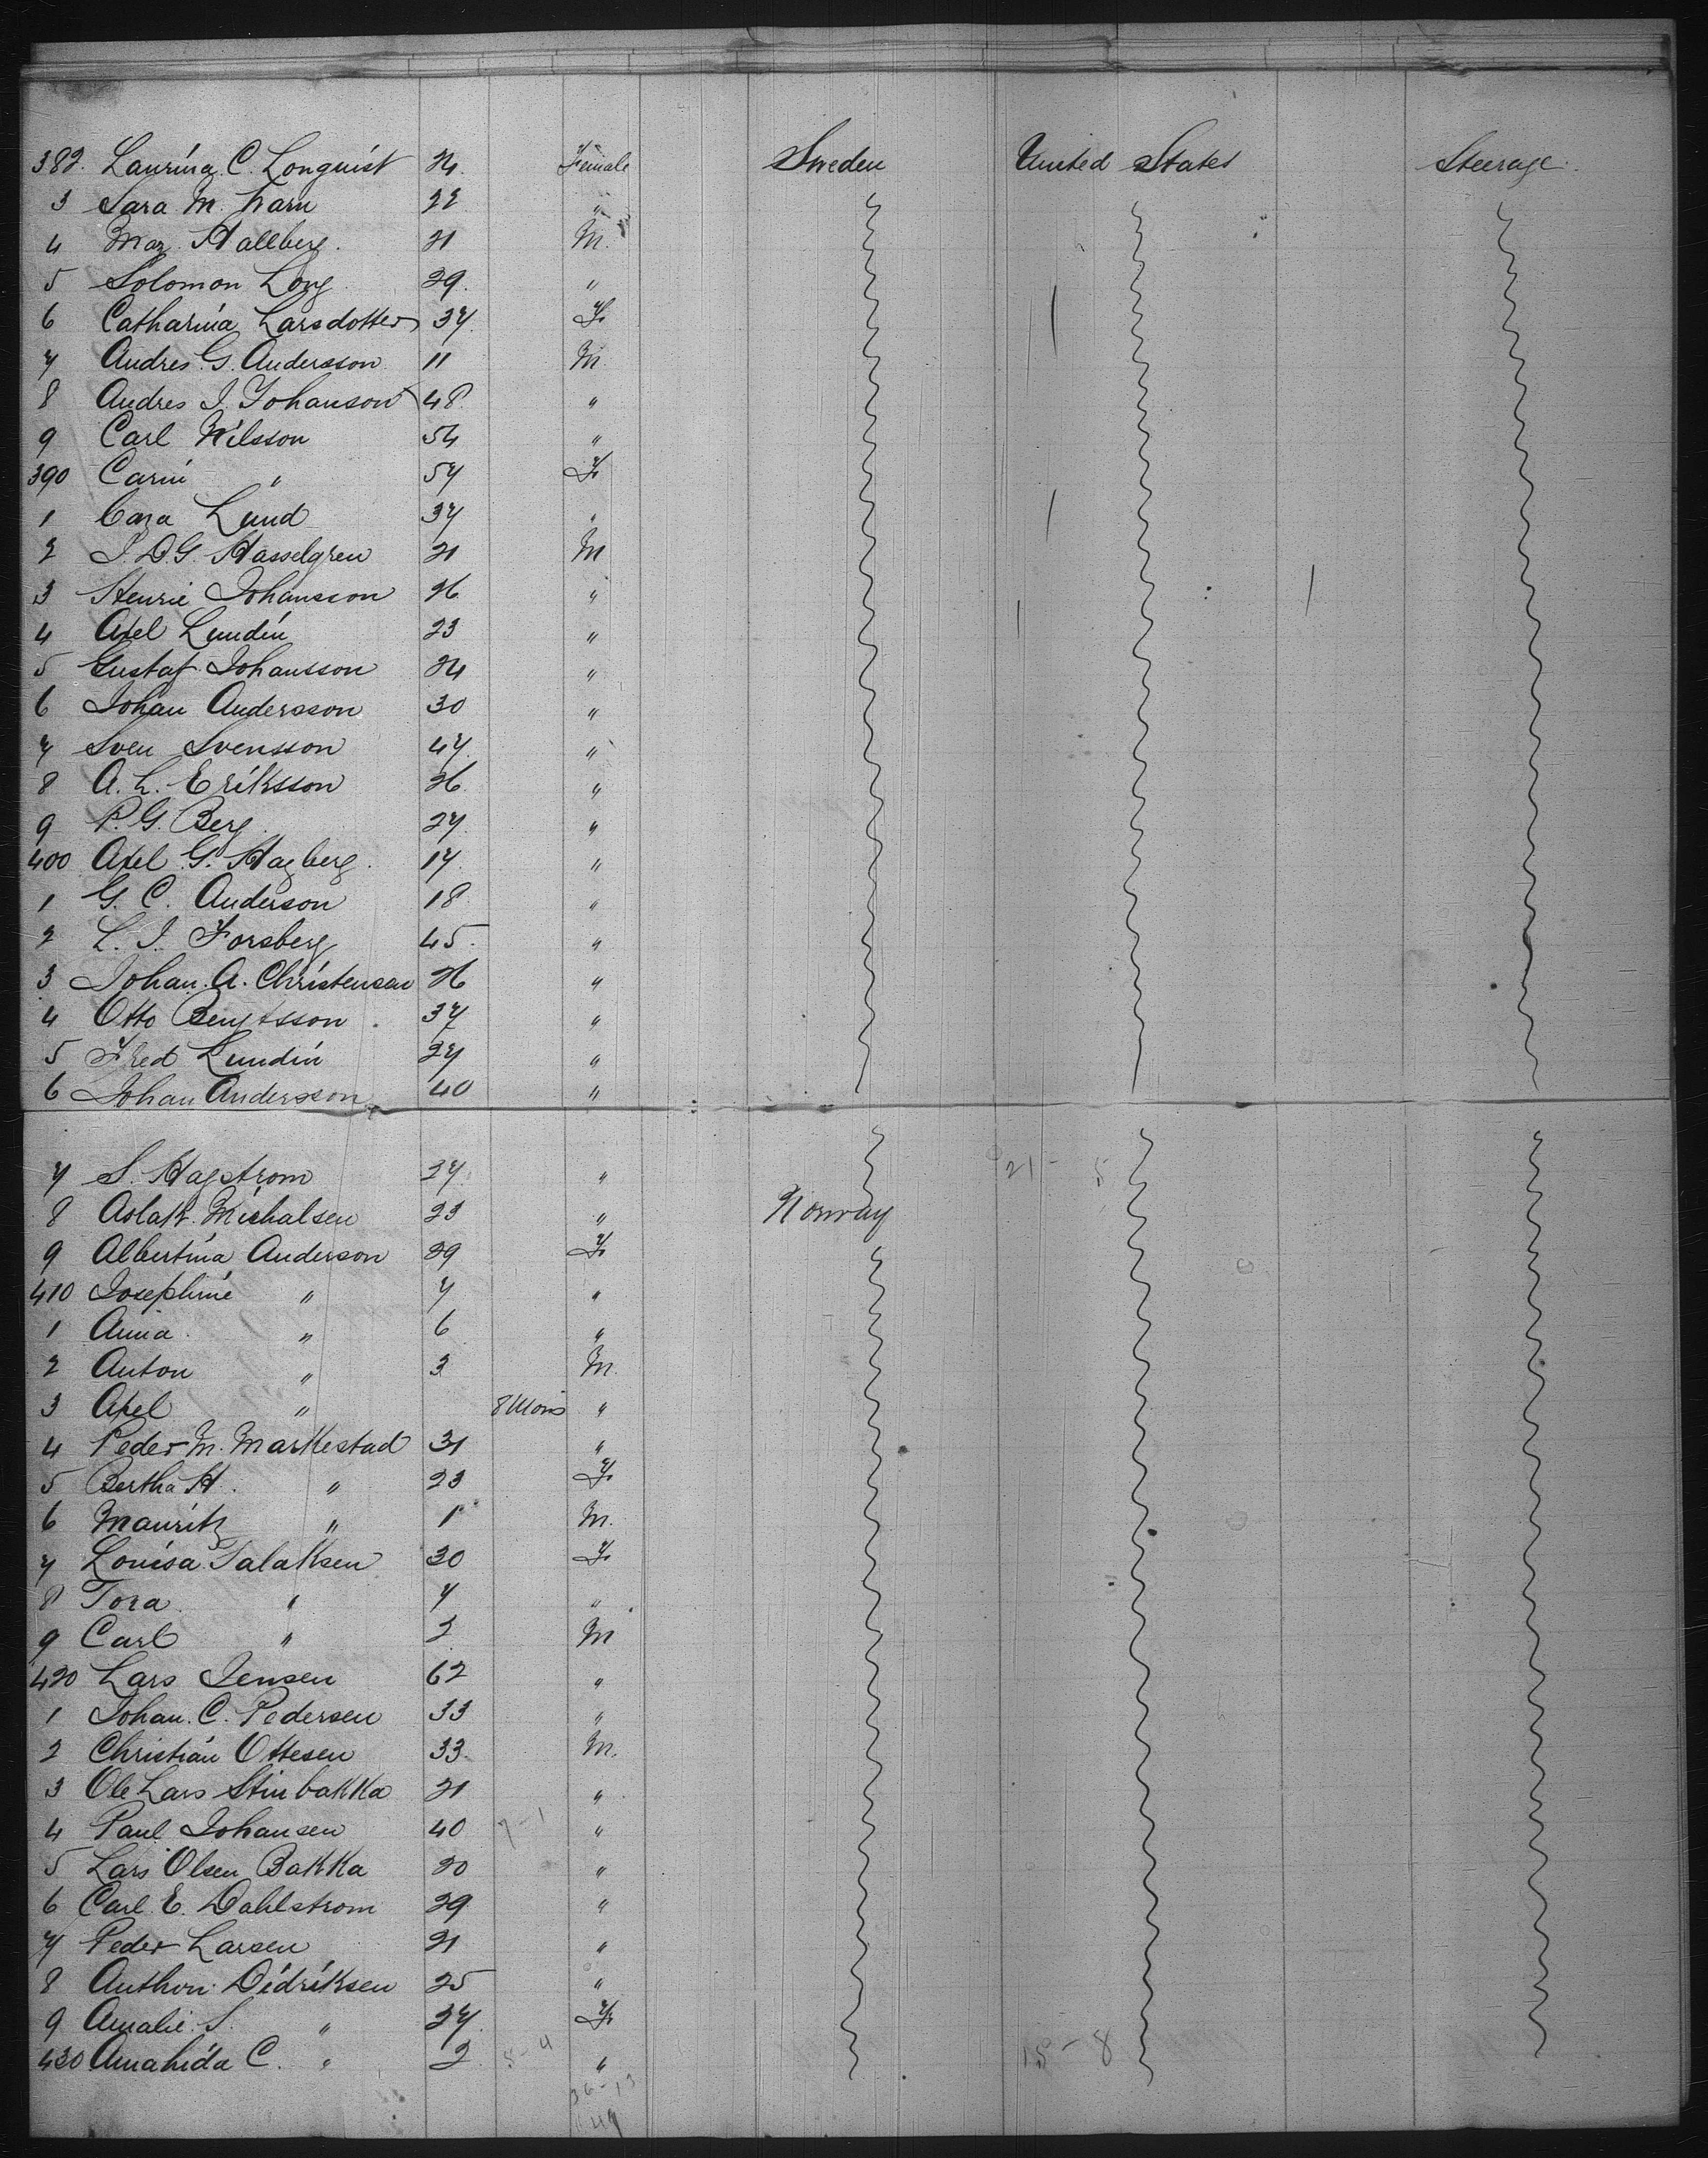 382. Laurina C. Lonquist 24. Female Sweden United States Steerage.
3 Sara M. Warn 22 "
4 Hallberg. 21 M.
5 Solomon Long 29. "
6 Catharina Larsdotter 37. F.
7 Andres G. Andersson 11 M.
8 Andres I. Johanson 48. "
9 Carl Nilsson 54 "
390 Carin " 57 F.
1 Cara Lund 37 "
2 P. D. G. Hasselgren 21 M
3 Henrie Johansson 26. "
4 Axel Lundin 23 "
5 Gustaf Johansson 24 "
6 Johan Andersson 30 "
7 Sven Svensson 47. "
8 A. L. Eriksson 26. "
9 P. G. Berg 27. "
400 Axel G. Hagberg. 17. "
1 G. C. Anderson 18. "
2 L. I. Forsberg 45. "
3 Johan. A. Christensen 26 "
4 Otto Bengtsson. 37 "
5 Fred Lundin 27 "
6 Johan Andersson 40 "
7 S. Hagstrom 27. " 21 - 5
8 Aslak Michalsen 23 " Norway
9 Albertina Anderson 29 F.
410 Josephine " 7 "
1 Anna " 6 "
2 Anton " 3 M.
3 Axel " 8 Mons "
4 Peder M. Markestad 31 "
5 Bertha H. " 23 F.
6 Mauritz " 1 M.
7 Louisa Talaksen 30 F.
8 Tora " 7 "
9 Carl " 2 M
420 Lars Jensen 62 "
1 Johan. C. Pedersen 33 "
2 Christian Ottesen 33. M.
3 Ole Lars Stinbakka 21 "
4 Paul Johansen 40 7-1 "
5 Lars Olsen Bakka 20 "
6 Carl E. Dahlstrom 29 "
7 Peder Larsen 21 "
8 Anthon Didriksen 25 "
9 Amalie S. " 27. F.
430 C. " 2 5-4 " 15 - 8
36-13
49